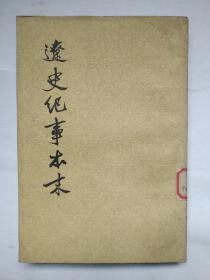 遼史紀事本末